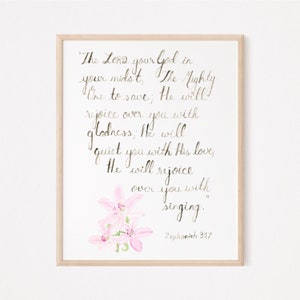 "The LORD your God in
your midst, The Mighty
One to save; He will
rejoice over you with
gladness; He will
quiet you with His love,
He will rejoice
over you with
singing."
Zephaniah 3:17